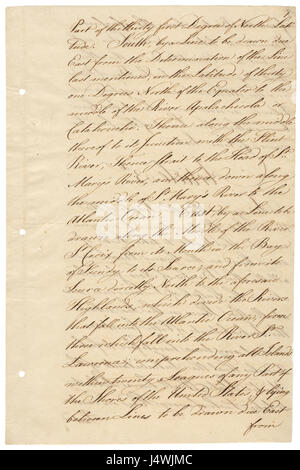 Part of the thirty first Degree of North Lati
tude. South, by a Line to be drawn due
East from the Determination of the Line
last mentioned, in the Latitude of thirty
one Degrees North of the Equator to the
middle of the River Apalachicola or
Catahouche. Thence along the middle
thereof to its Junction with the Flint
River, thence strait to the Head of St.
Mary's River, and thence down along
the middle of St. Mary's River to the
Atlantic Ocean. East, by a Line to be
drawn along the Middle of the River
St. Croix, from its Mouth in the Bay
of Fundy to its Source; and from its
Source directly North to the aforesaid
Highlands, which divide the Rivers
that fall into the Atlantic Ocean, from
those which fall into the River St.
Lawrence; comprehending all Islands
within twenty Leagues of any Part of
the Shores of the United States, & lying
between Lines to be drawn due East
from
alamy stock photo
Image ID: J4WJMC
www.alamy.com